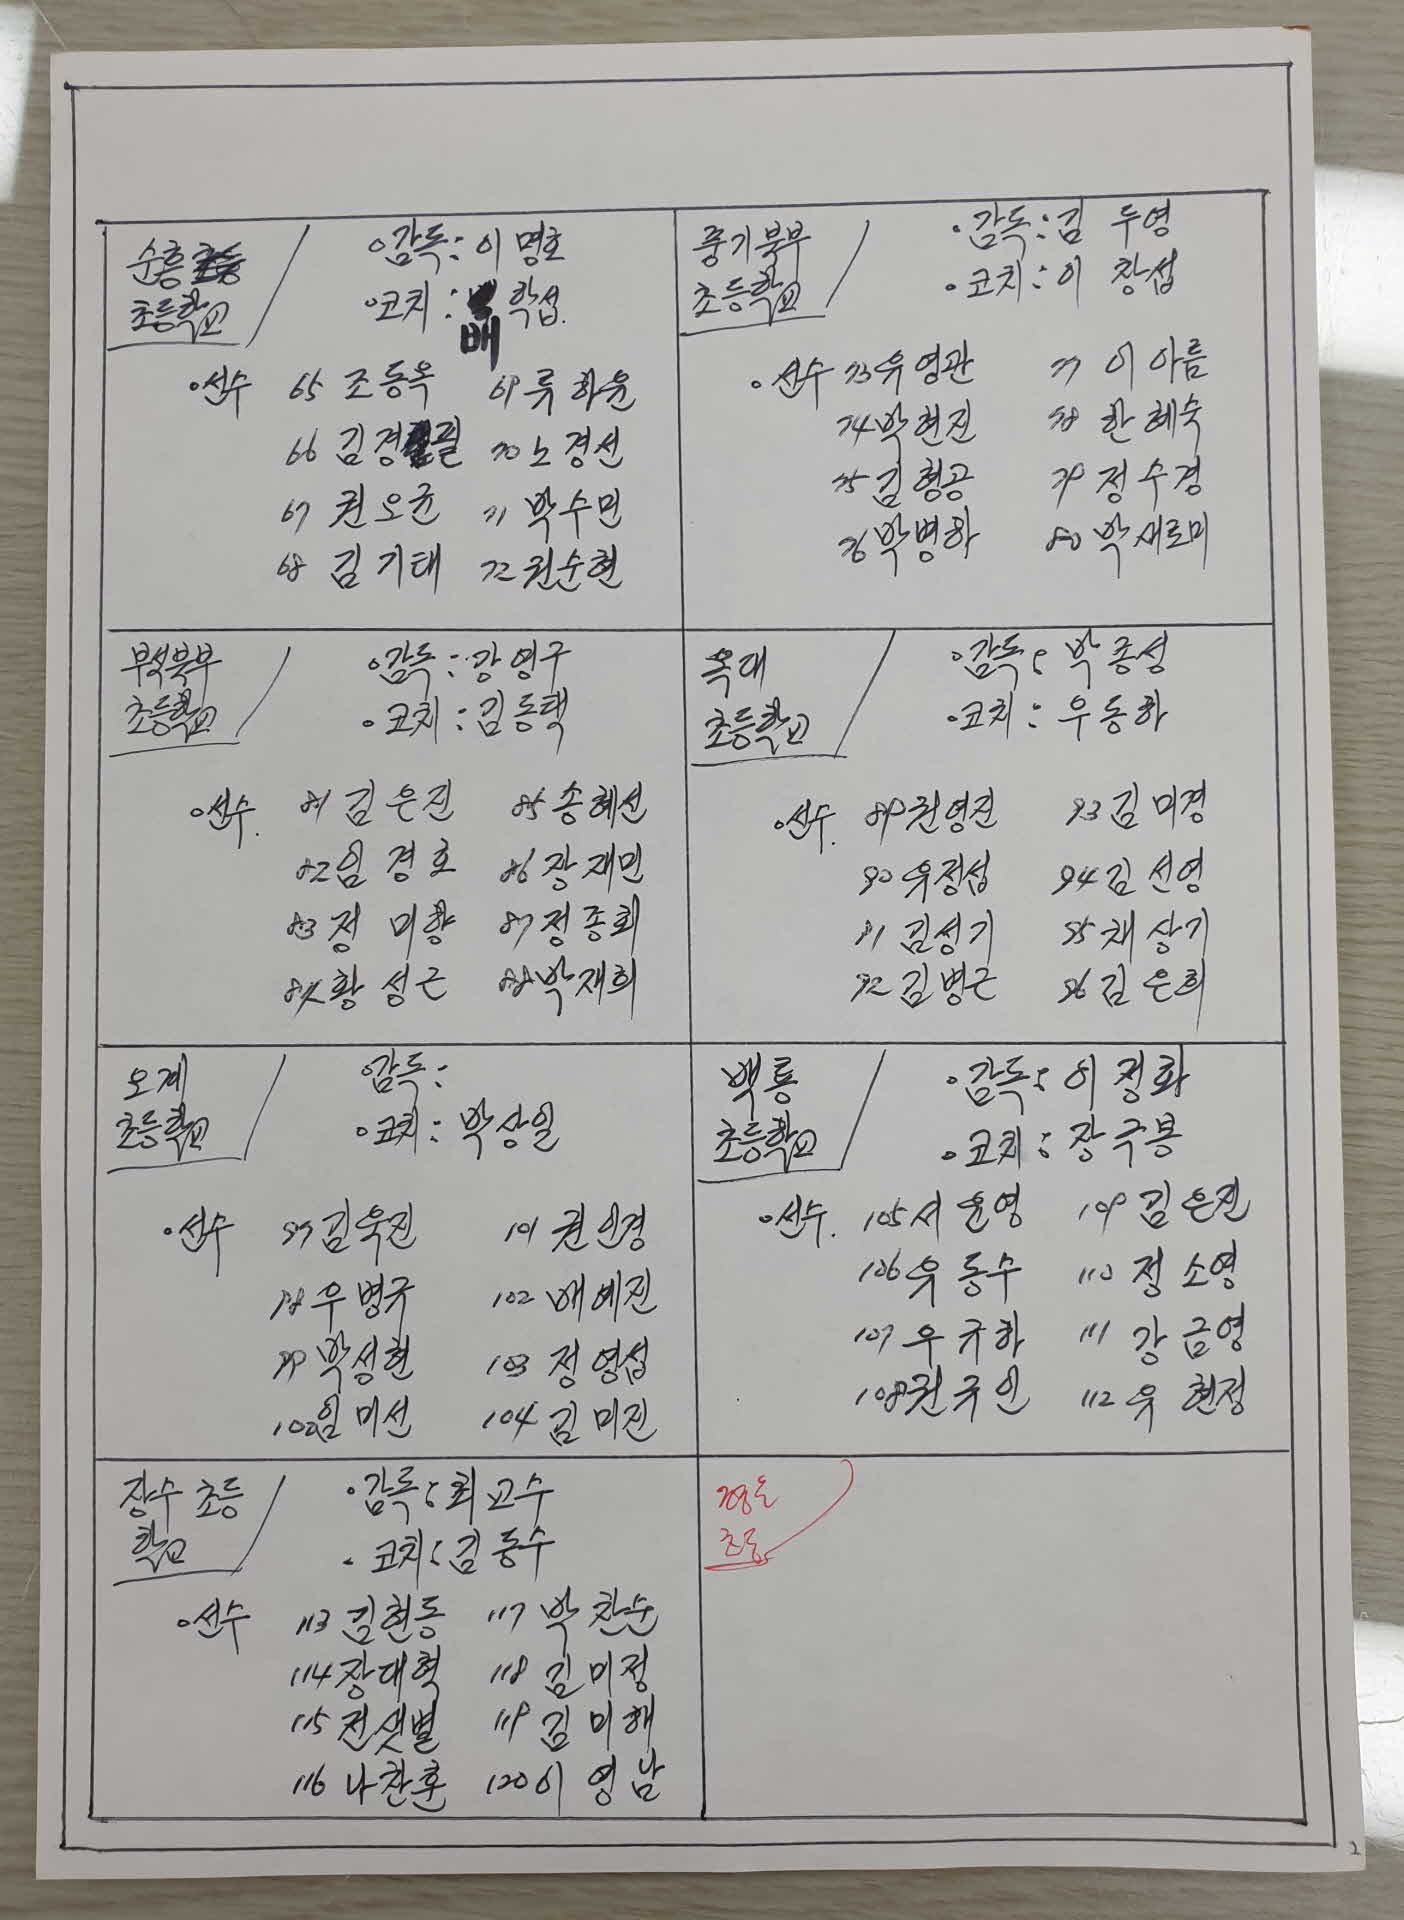 순흥
초등학교
◦감독: 이명호
◦코치: 배 학섭.
◦선수 65 조동옥 69 류하윤
66 김경필 70 노경선
67 권오균 71 박수민
68 김기태 72 권순현
풍기북부
초등학교
◦감독: 김 두영
◦코치: 이 창섭
◦선수 73 우영관 77 이아름
74 박현진 78 한혜숙
75 김형공 79 정수경
76 박병하 80 박새로미
부석북부
초등학교
◦감독: 강영구
◦코치: 김동택
◦선수. 81 김은진 85 송혜선
82 임경호 86 장재민
83 정미향 87 정종회
84 황성근 88 박재희
옥대
초등학교
◦감독: 박종성
◦코치: 우동하
◦선수. 89 권영진 93 김미경
90 우정섭 94 김선영
91 김성기 95 채상기
92 김병근 96 김은희
오계
초등학교
◦감독:
◦코치: 박상일
◦선수 97 김욱진 101 권인경
98 우병규 102 배예진
99 박성현 103 정영섭
100 임미선 104 김미진
백룡
초등학교
◦감독: 이정화
◦코치: 장국봉
◦선수. 105 서윤영 109 김은진
106 우동수 110 정소영
107 우규하 111 강금영
108 권규인 112 우현정
장수 초등
학교
◦감독: 최교수
◦코치: 김동수
◦선수 113 김현동 117 박찬순
114 장대혁 118 김미정
115 전샛별 119 김미해
116 나찬훈 120 이영남
초등
2